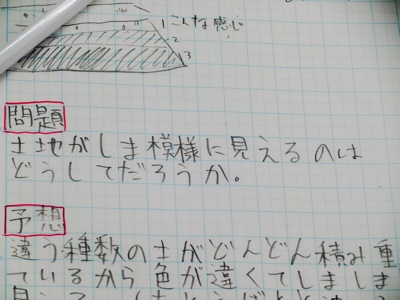 1 こんな感じ
2
3
問題
土地がしま模様に見えるのは
どうしてだろうか。
予想
違う種数の土がどんどん積み重
ているから色が違くてしましま